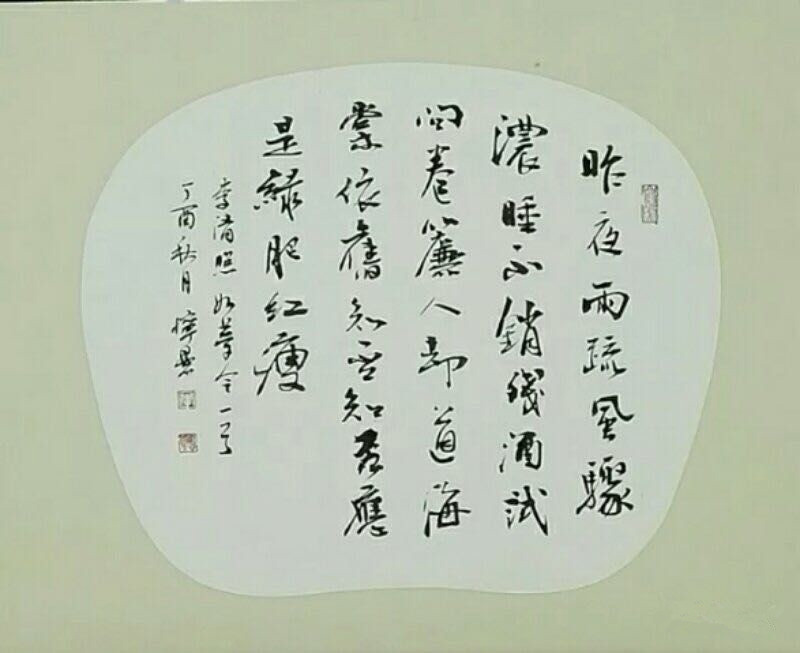 昨夜雨疏風驟
濃睡不銷殘酒試
問卷簾人却道海
棠依舊知否知否應
是綠肥紅瘦
李清照如夢令一首
丁酉秋月